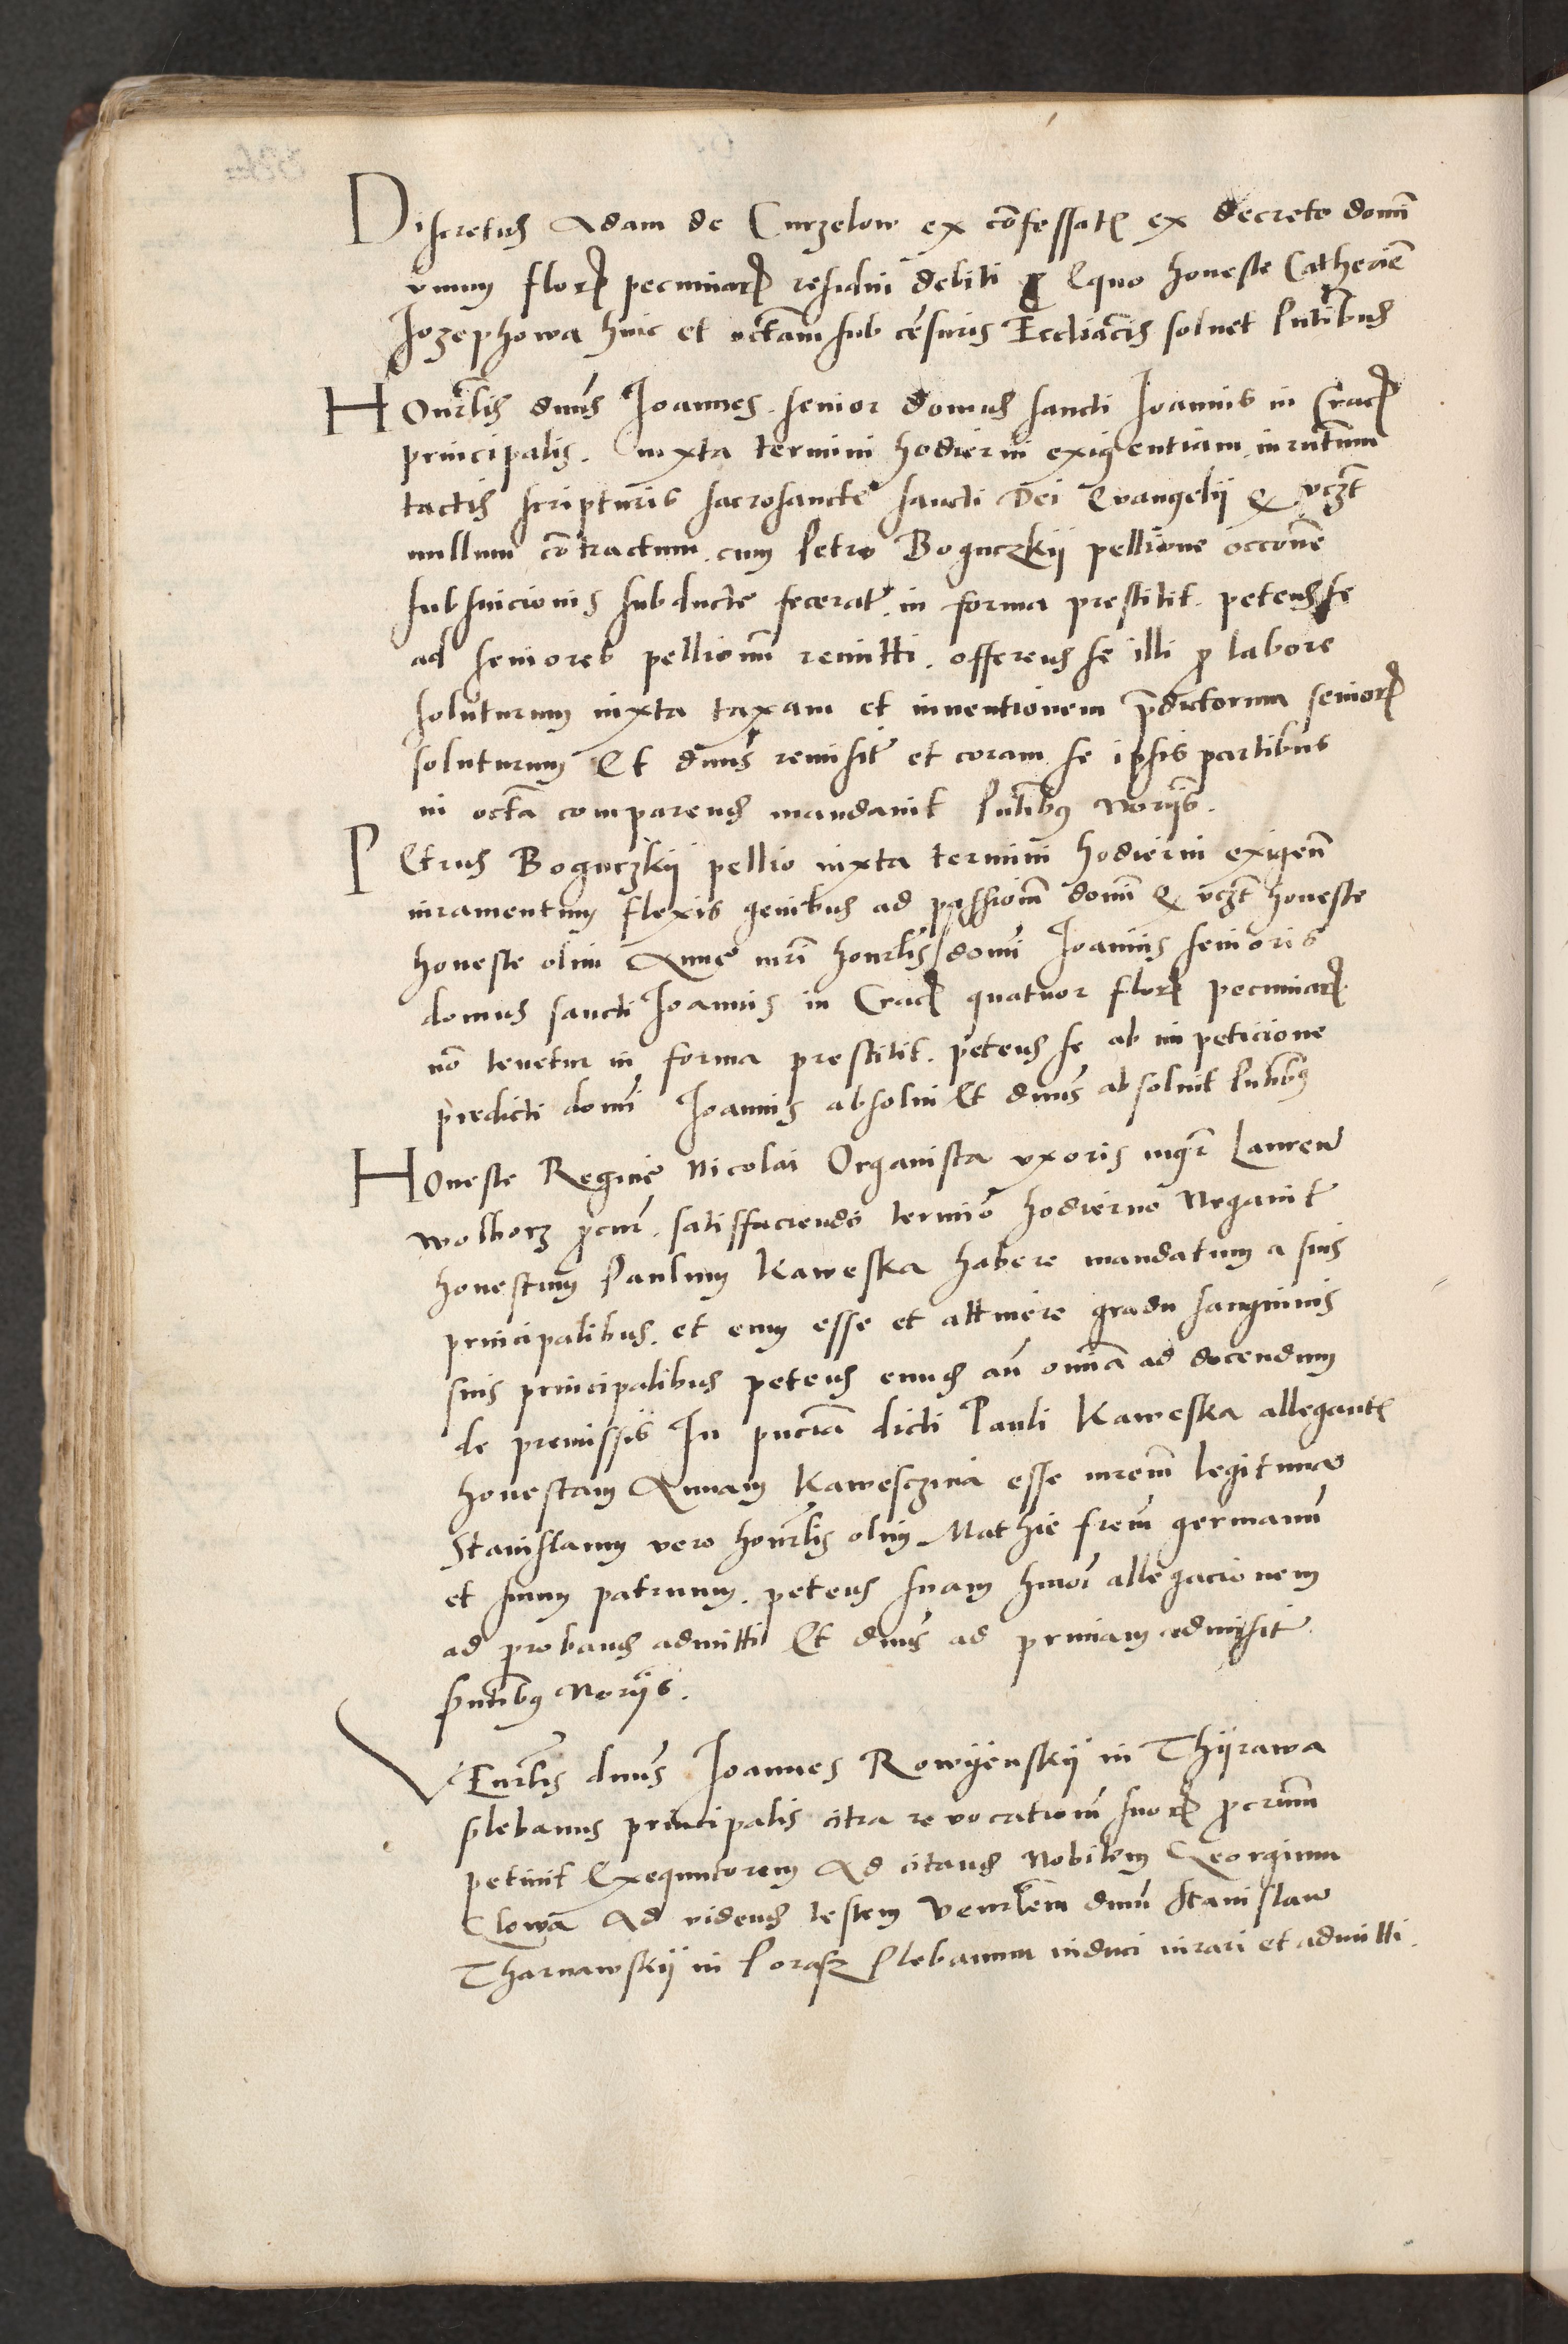 Discretus Adam de Curzelow ex cõfessatȩ ex decreto domĩ
vnum florȩ pecuniarȩ residui debiti p equo honeste Catherĩe
Jozephowa hinc et octãam sub cẽsuris Eccliãcis soluet Pñtibus
HOnr̃lis dnũs Joannes senior domus sancti Joannis in Cracȩ
principalis. Iuxta termini hodierni exigentiam iurñtum
tactis scripturis sacrosancte sancti Dei Evangelij q vcz̃t
nullum cõtractum cum Petro Boguczkij pellione occõne
subsuicionis subducte fecerat in forma prestitit. petens se
ad seniores pellionũ remitti. offerens se illi p labore
soluturum iuxta taxam et inventionem p̃dictorum seniorȩ
soluturum Et dnũs remisit et coram se ipsis partibus
in octã comparend mandavit Pñtibus Norijs.
PEtrus Boguczkij pellio iuxta termini hodierni exigeñ
iuramentum flexis genibus ad passionẽ domĩ q vcz̃t honeste
honeste olim Anne mr̃i honr̃lis domĩ Joannis senioris
domus sancti Joannis in Cracȩ quatuor florȩ pecuniarȩ
nõ tenetur in forma prestitit. petens se ab impeticione
predicti domĩ Joannis absolui Et dnũs absoluit Pñtibus
HOneste Regine Nicolai Organista vxoris mgr̃ Lauren
wolborz pcur̃. satisffaciendo termiõ hodierno Negavit
honestum Paulum Kaweska habere mandatum a suis
principalibus. et eum esse et attinere gradu sanguinis
suis principalibus petens eundem añ omĩa ad docendum
de premissis In pñcia dicti Pauli Kaweska allegantȩ
honestam Annam Kawesczina esse mr̃em legitimã
Stanislaum vero honr̃lis olim Mathie fr̃em germanũ
et suum patruum. petens suam hmõi allegacionem
ad proband admitti Et dnũs ad primam admisit
pñtibus Norijs.
VEnr̃lis dnũs Joannes Rowyenskij in Thijrawa
plebanus principalis citra revocationẽ suorȩ pcur̃um
petiuit Exequutorem Ad citand Nobilem Georgium
Clowã Ad videnđ testem Venr̃lem dnũ Stanislaw
Tharnawskij in Poraz Plebanum induci iurari et admitti.